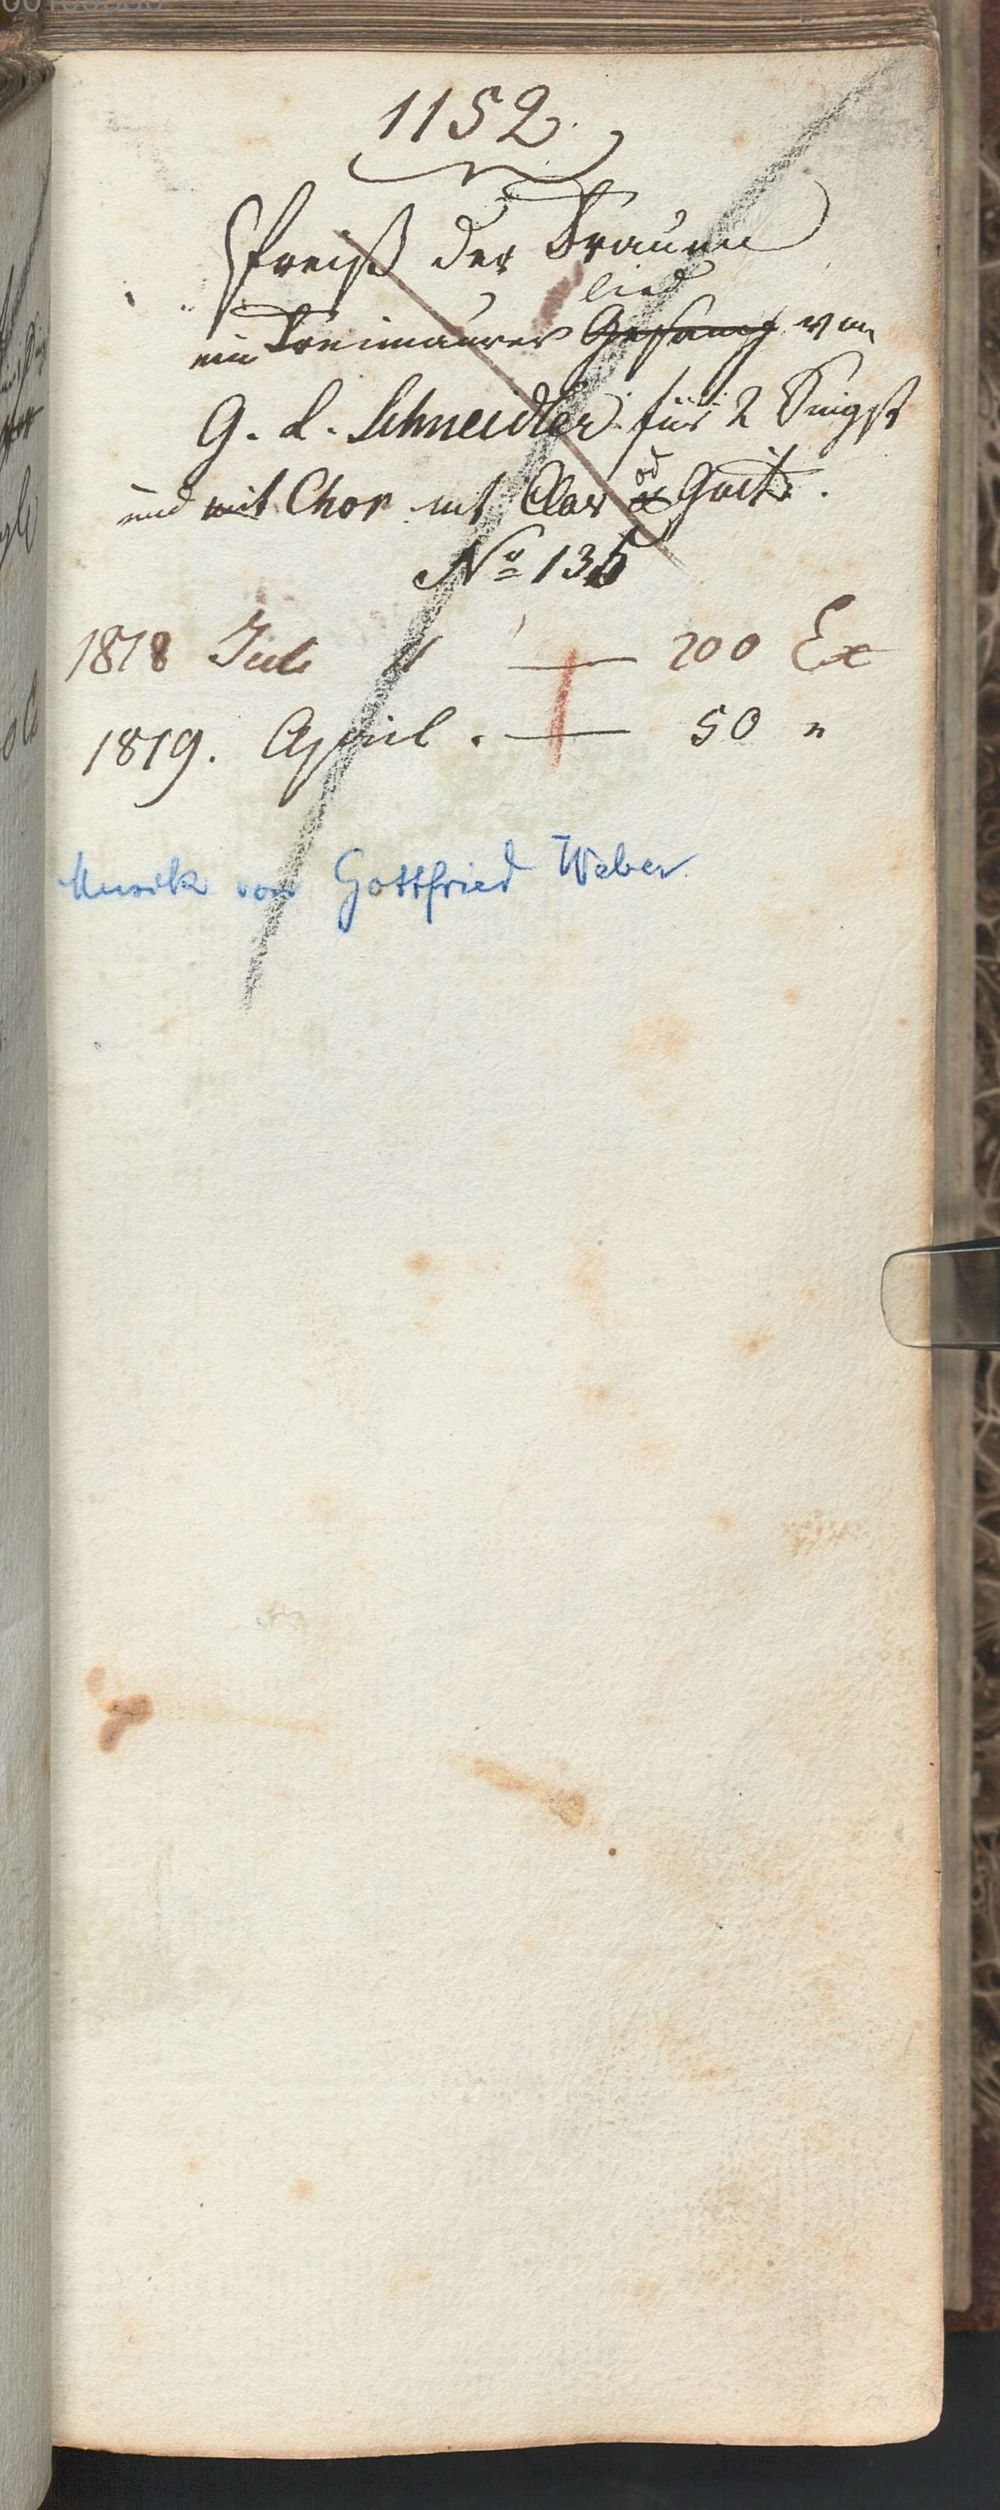 1152.
Preiß der Frauen
lied
ein Freimaurer Gesang von
G. L. Schneidler für 2 Singst
od
und mit Chor mit Clav & Guit.
No 135
1818 Juli 200 Ex
1819. April. 50 "
Musik von Gottfried Weber